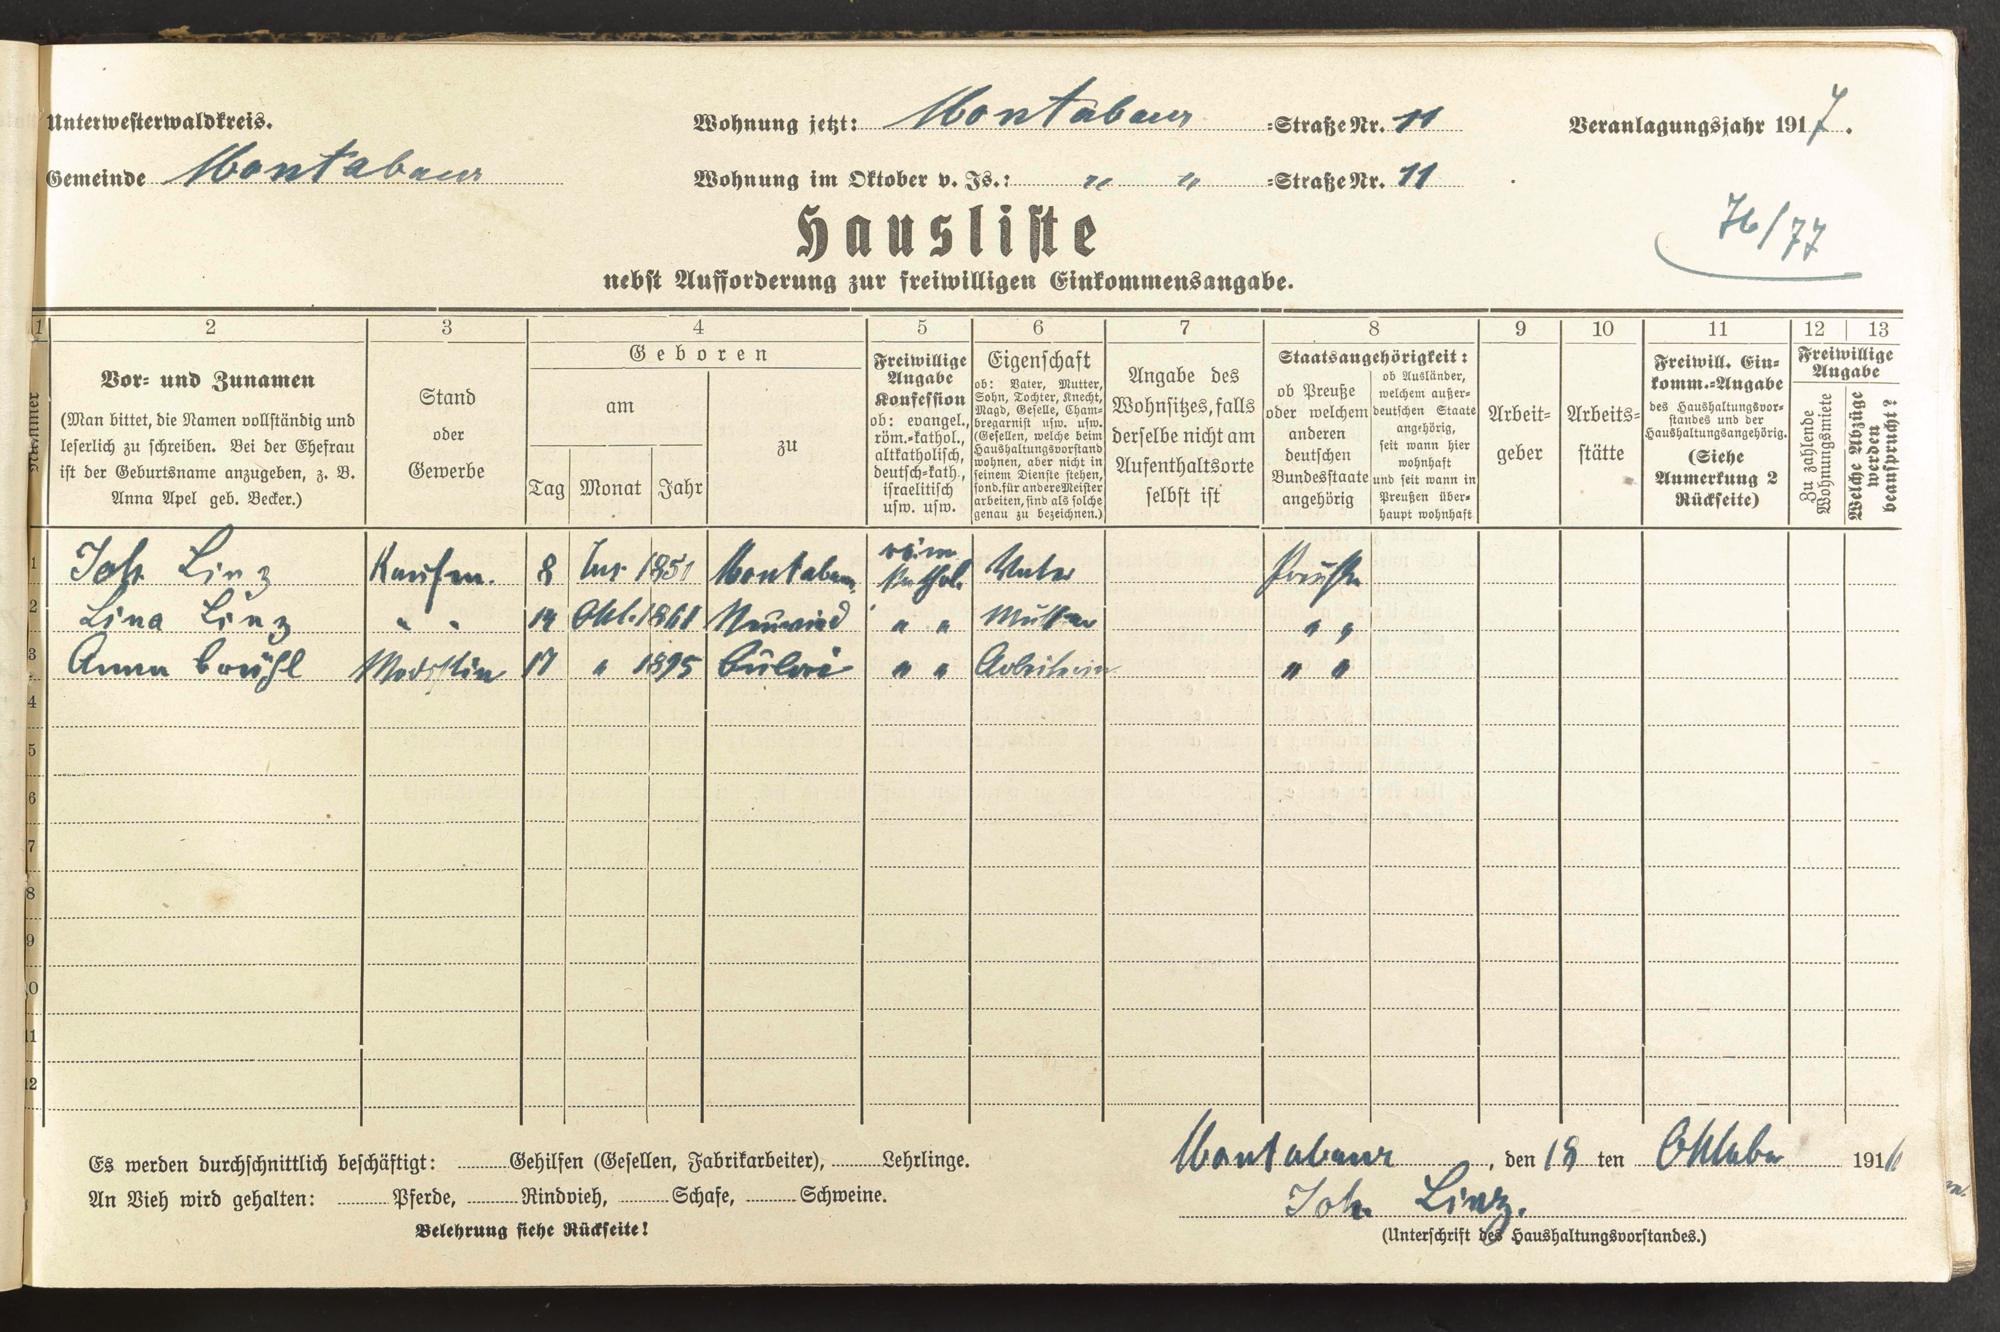 Unterwesterwaldkreis.
Gemeinde Montabaur
Wohnung jetzt: Montabaur =Straße Nr. 11
Wohnung im Oktober v. Js.: " " =Straße Nr. 11
Veranlagungsjahr 1917.
76/77
Hausliste
nebst Aufforderung zur freiwilligen Einkommensangabe.
1 2 3 4 5 6 7 8 9 10 11 12 13
Männer
Vor= und Zunamen
(Man bittet, die Namen vollständig und
leserlich zu schreiben. Bei der Ehefrau
ist der Geburtsname anzugeben, z. B.
Anna Apel geb. Becker.)
Stand
oder
Gewerbe
Geboren
am
Tag Monat Jahr
zu
Freiwillige
Angabe
Konfession
ob: evangel.,
röm.=kathol.,
altkatholisch,
deutsch=kath.,
israelitisch
usw. usw.
Eigenschaft
ob: Vater, Mutter,
Sohn, Tochter, Knecht,
Magd, Geselle, Cham=
bregarnist usw. usw.
(Gesellen, welche beim
Haushaltungsvorstand
wohnen, aber nicht in
seinem Dienste stehen,
sond. für andere Meister
arbeiten, sind als solche
genau zu bezeichnen.)
Angabe des
Wohnsitzes, falls
derselbe nicht am
Aufenthaltsorte
selbst ist
Staatsangehörigkeit:
ob Preuße
oder welchem
anderen
deutschen
Bundesstaate
angehörig
ob Ausländer,
welchem außer=
deutschen Staate
angehörig,
seit wann hier
wohnhaft
und seit wann in
Preußen über=
haupt wohnhaft
Arbeit=
geber
Arbeits=
stätte
Freiwill. Ein=
komm.=Angabe
des Haushaltungsvor=
standes und der
Haushaltungsangehörig.
(Siehe
Anmerkung 2
Rückseite)
Freiwillige
Angabe
Zu zahlende
Wohnungsmiete
Welche Abzüge
werden
beansprucht?
1 Joh. Linz Kaufm. 8 1851 Montabaur röm. kathol. Vater Preuße
2 Lina Linz " " 14 Okt. 1861 Neuwied " " Mutter " "
3 Anna Brühl Modistin 17 " 1895 " " Arbeiterin " "
4
5
6
7
8
9
10
11
12
Es werden durchschnittlich beschäftigt: Gehilfen (Gesellen, Fabrikarbeiter), Lehrlinge.
An Vieh wird gehalten: Pferde, Rindvieh, Schafe, Schweine.
Belehrung siehe Rückseite!
Montabaur, den 18 ten Oktober 1916
Joh. Linz.
(Unterschrift des Haushaltungsvorstandes.)